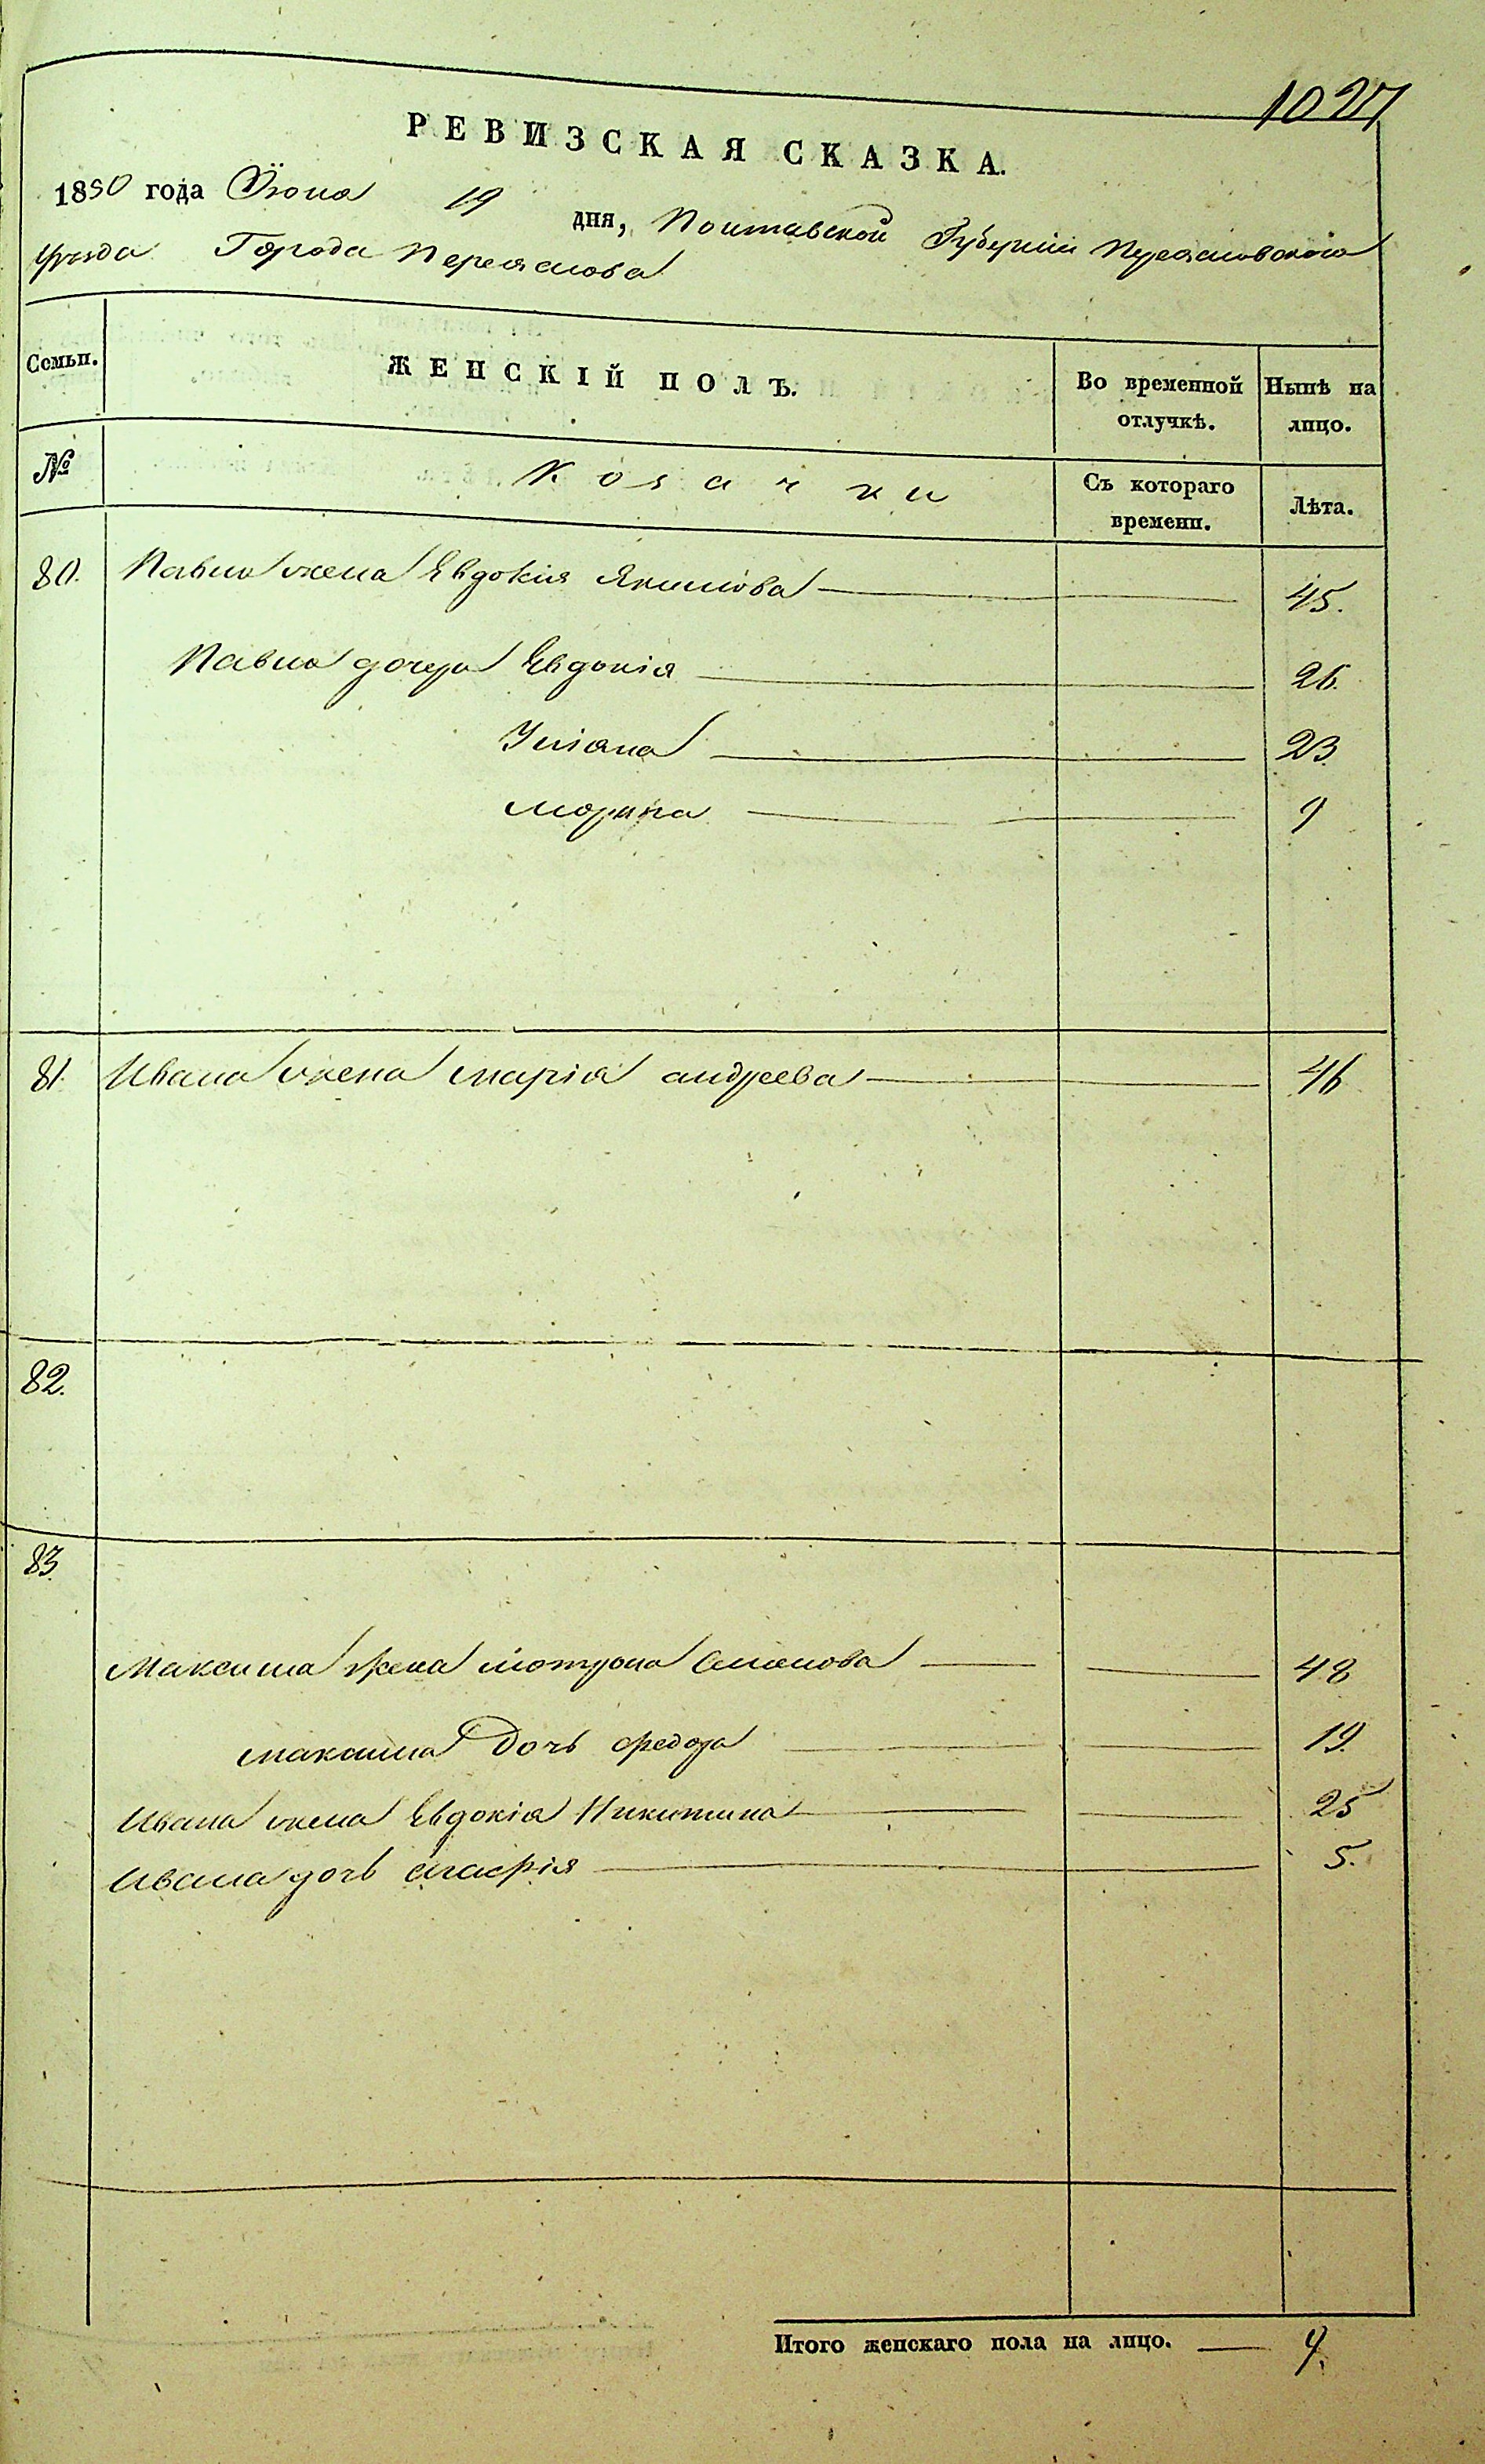 1027
РЕВИЗСКАЯ СКАЗКА.
1850 года Июня 19 дня, Полтавской Губернии Переяславского
уезда Города Переяслова
Семьи. ЖЕНСКІЙ ПОЛЪ. Во временной отлучкѣ. Нынѣ на лицо.
№ Козачки Съ котораго времени. Лѣта.
80. Павла жена Евдокия Якимова 45.
Павла дочери Евдокія 26.
Уліяна 23
Марина 9
81. Ивана жена Марія Андреева 46
82.
83.
Максима жена Мотрона Семенова 48
Максима дочь Федора 19.
Ивана жена Евдокія Никитина 25
Ивана дочь 5.
Итого женскаго пола на лицо. 9.